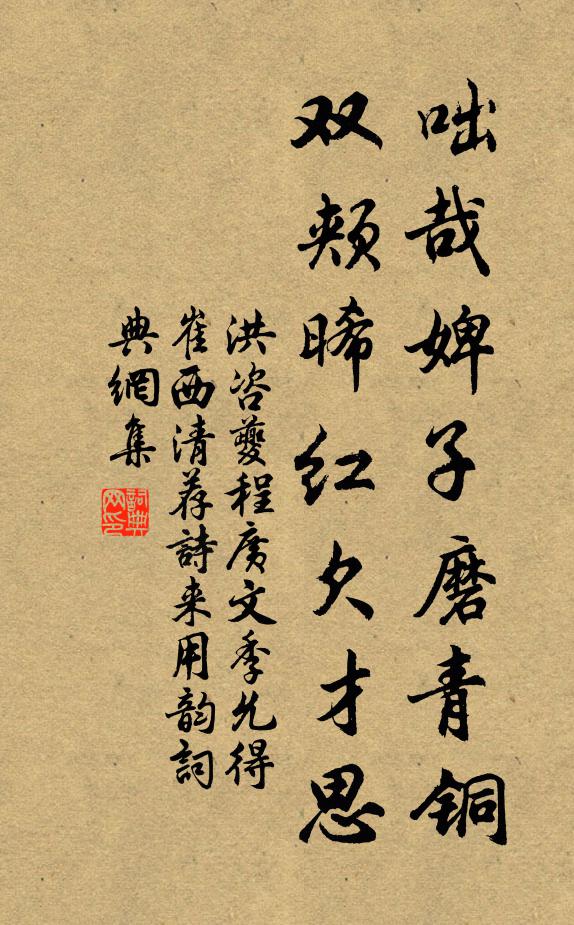 咄哉婢子磨青铜
双颊晞红欠才思
洪咨夔程广文季允得
崔西清荐詩来用韵詞
典網集
詞典网印